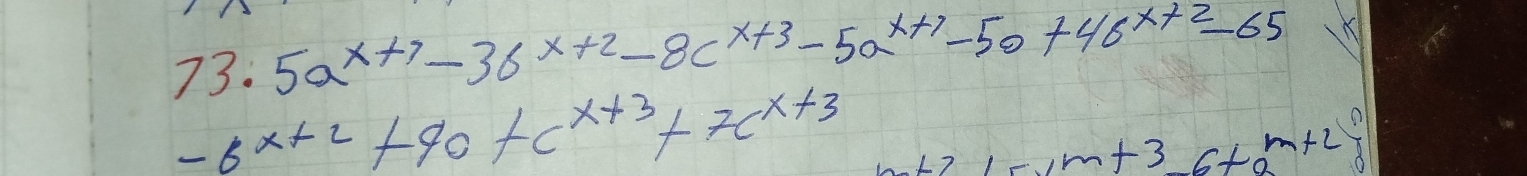 73. 5a^{x+1} - 3b^{x+2} - 8c^{x+3} - 5a^{x+1} - 50 + 4b^{x+2} - 65
- b^{x+2} + 90 + c^{x+3} + 7c^{x+3}
m+3 - 6 + a^{m+2}